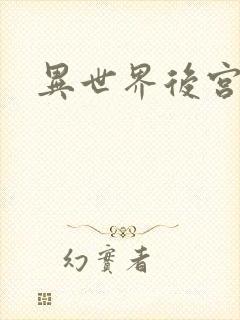 異世界後宮
幻實者